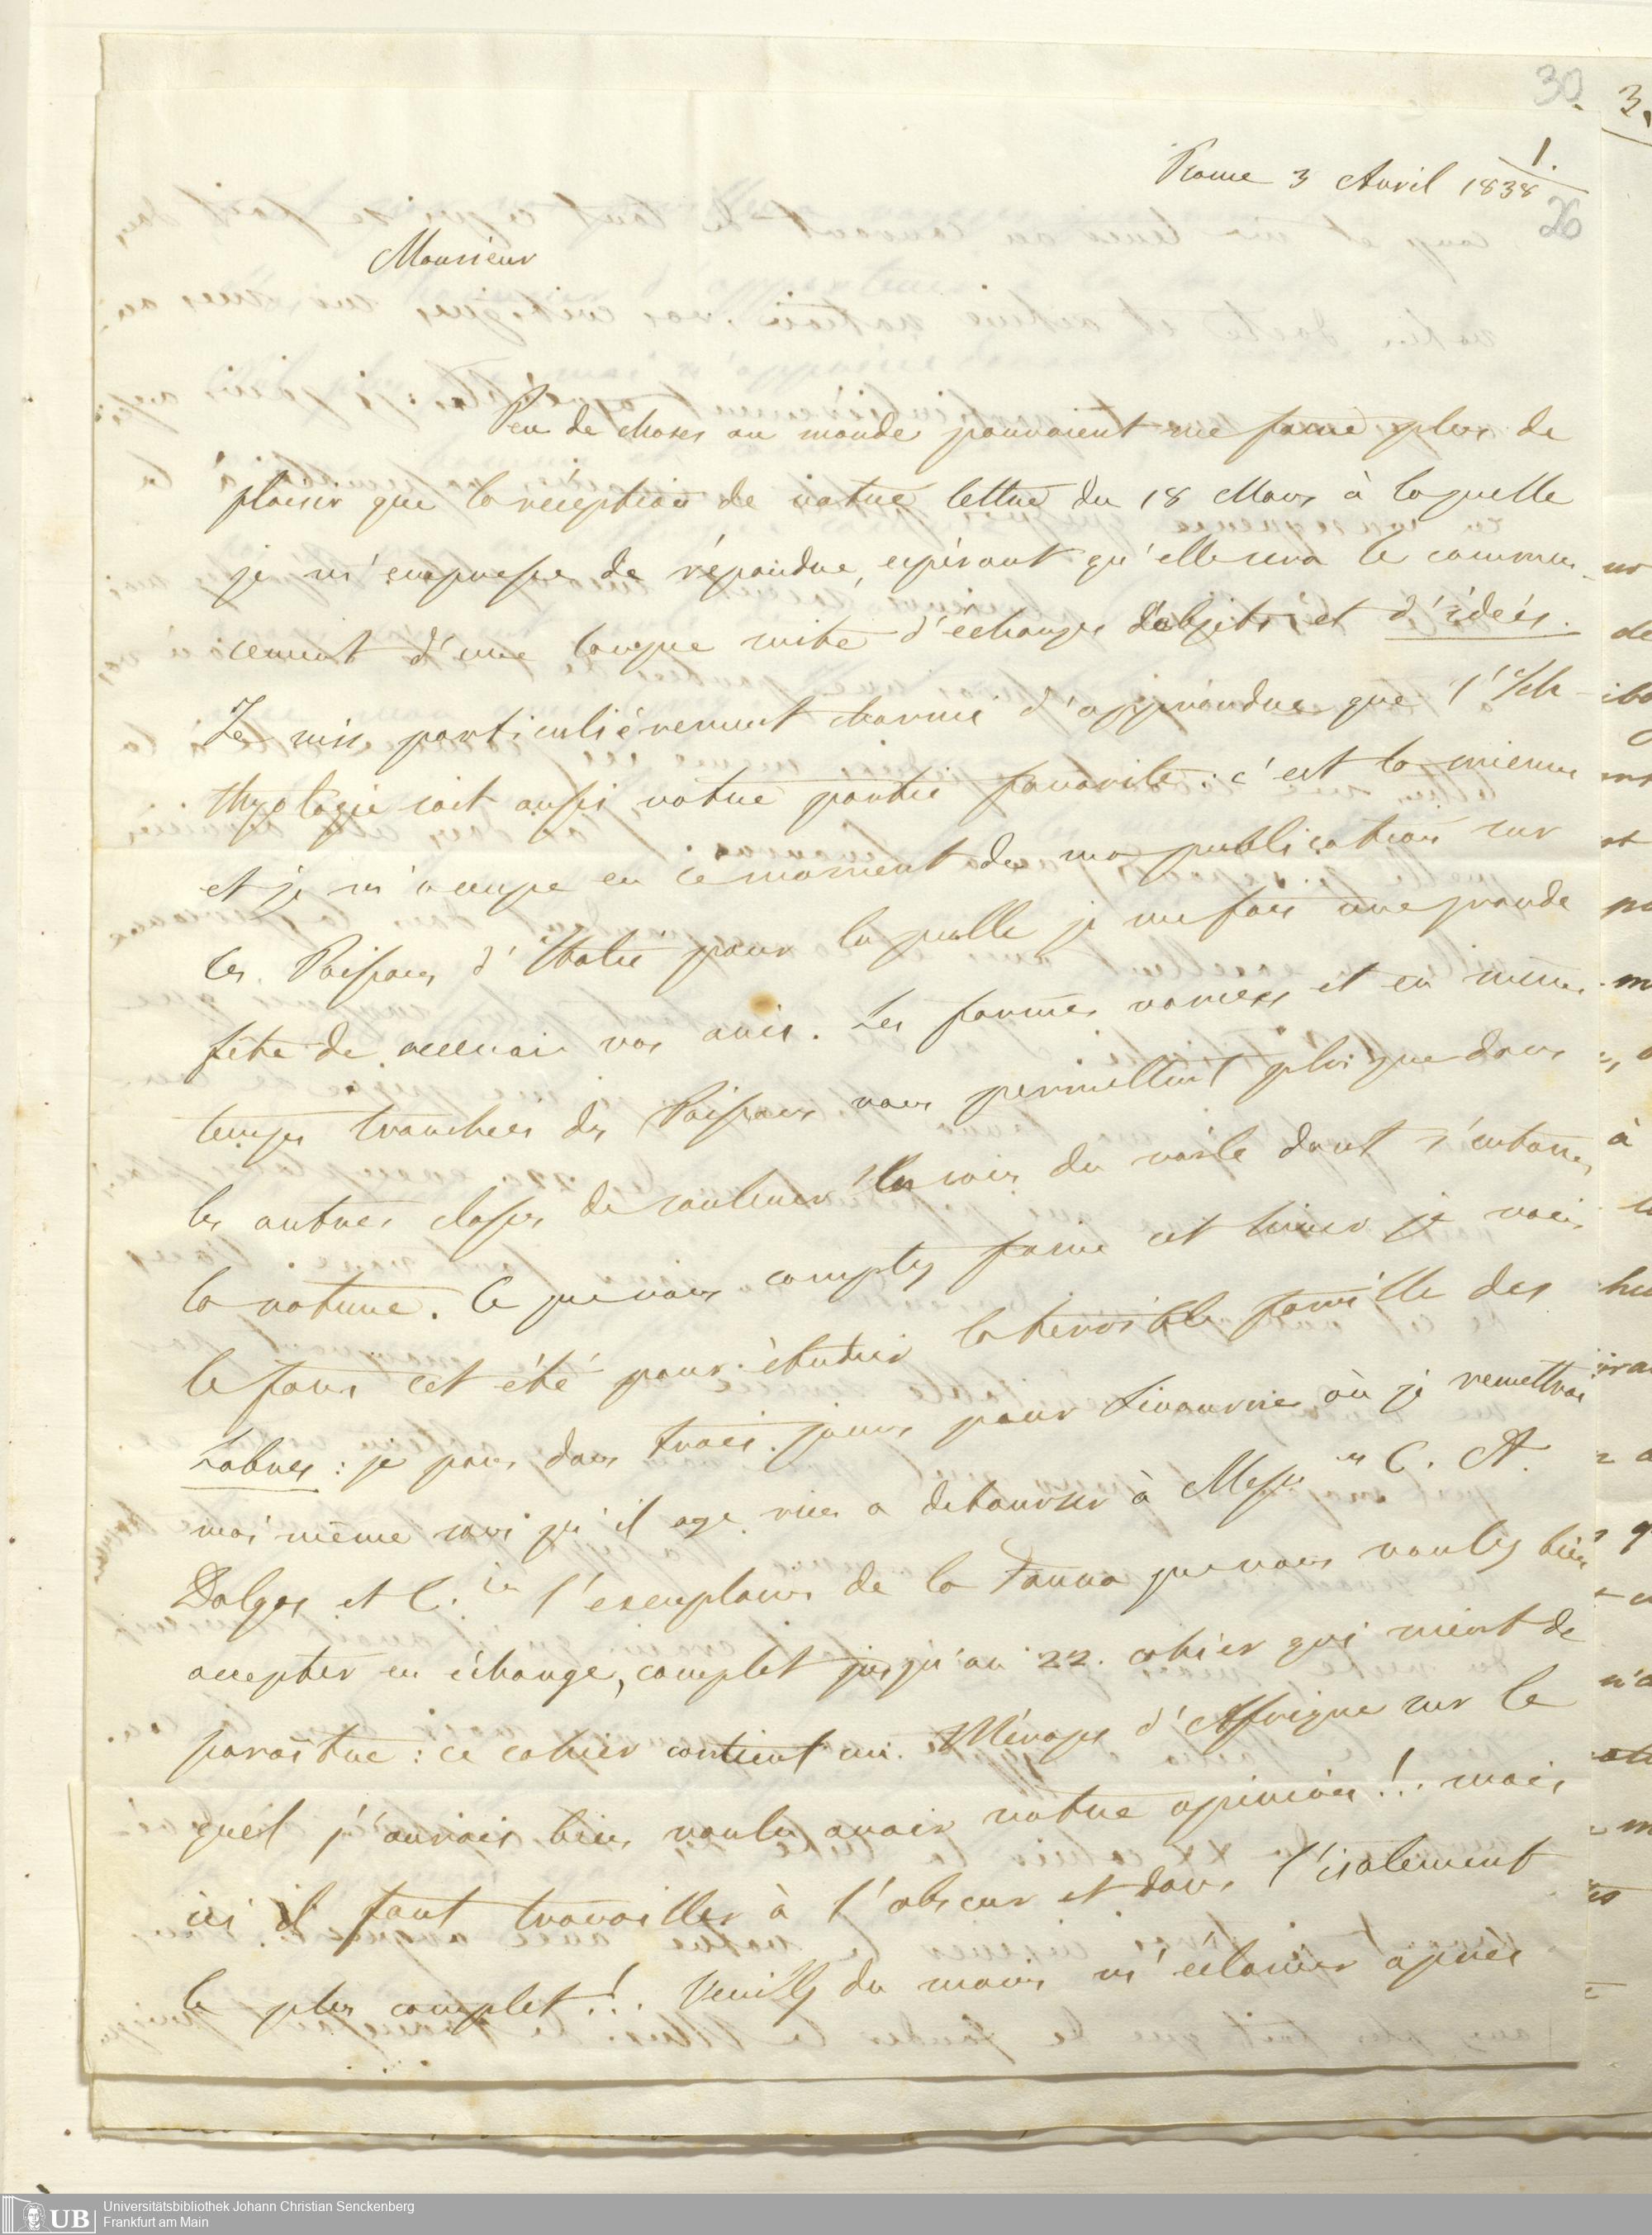 30
3.
Rome 3 Avril 1838
1.
26
Monsieur
Peu de choses au monde pouvaient me faire plus de
plaisir que la reception de votre lettre du 18 Mars à laquelle
je m'empresse de répondre, espérant qu'elle sera le commen-
cement d'une longue suite d'échanges d'objets et d'idées.
Je suis particulièrement charmé d'apprendre que l'Ich-
thyologie soit aussi votre partie favorite: c'est la mienne
et je m'occupe en ce moment de ma publication sur
les Poissons d'Italie pour laquelle je me fais une grande
fête de recevoir vos avis. Les formes variées et en même
temps tranchées des Poissons nous permettent plus que dans
les autres classes de soulever un coin du voile dont s'entoure
la nature. Ce que vous comptez faire cet hiver je vais
le faire cet été pour étudier la terrible famille des
Labres: je pars dans trois jours pour Livourne où je remettrai
moi même sans qu'il aye rien a debourser à Mess.rs C. A.
Dalgas et C.ie l'exemplaire de la Fauna que vous voulez bien
accepter en échange, complet jusqu'au 22. cahier qui vient de
paraître: ce cahier contient un Mérops d'Affrique sur le
quel j'aurais bien voulu avoir votre opinion!. mais
ici il faut travailler à l'obscur et dans l'isolement
le plus complet!. Veuillez du moins m'éclairer après
UB
Universitätsbibliothek Johann Christian Senckenberg
Frankfurt am Main